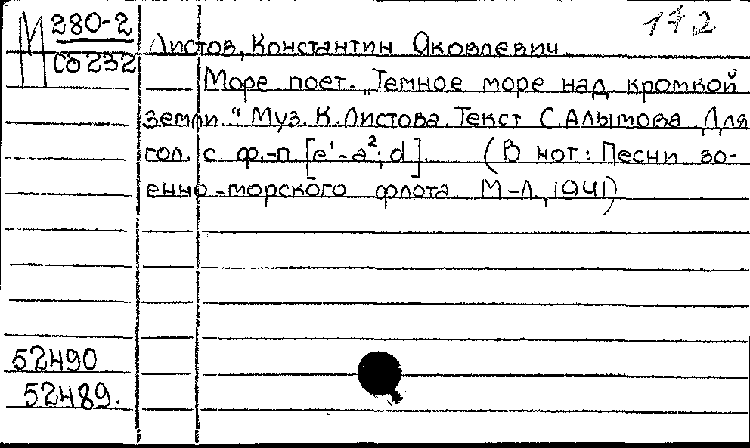 172
М 280-2
Сб 232
Листов, Константин Яковлевич
Море поет. „Темное море над кромкой
земли." Муз. К. Листова. Текст С. Алымова. Для
гол. с ф.-п [e¹-a²; d] (В нот: Песни во-
енно-морского флота. М-Л, 1941)
52490
52489.